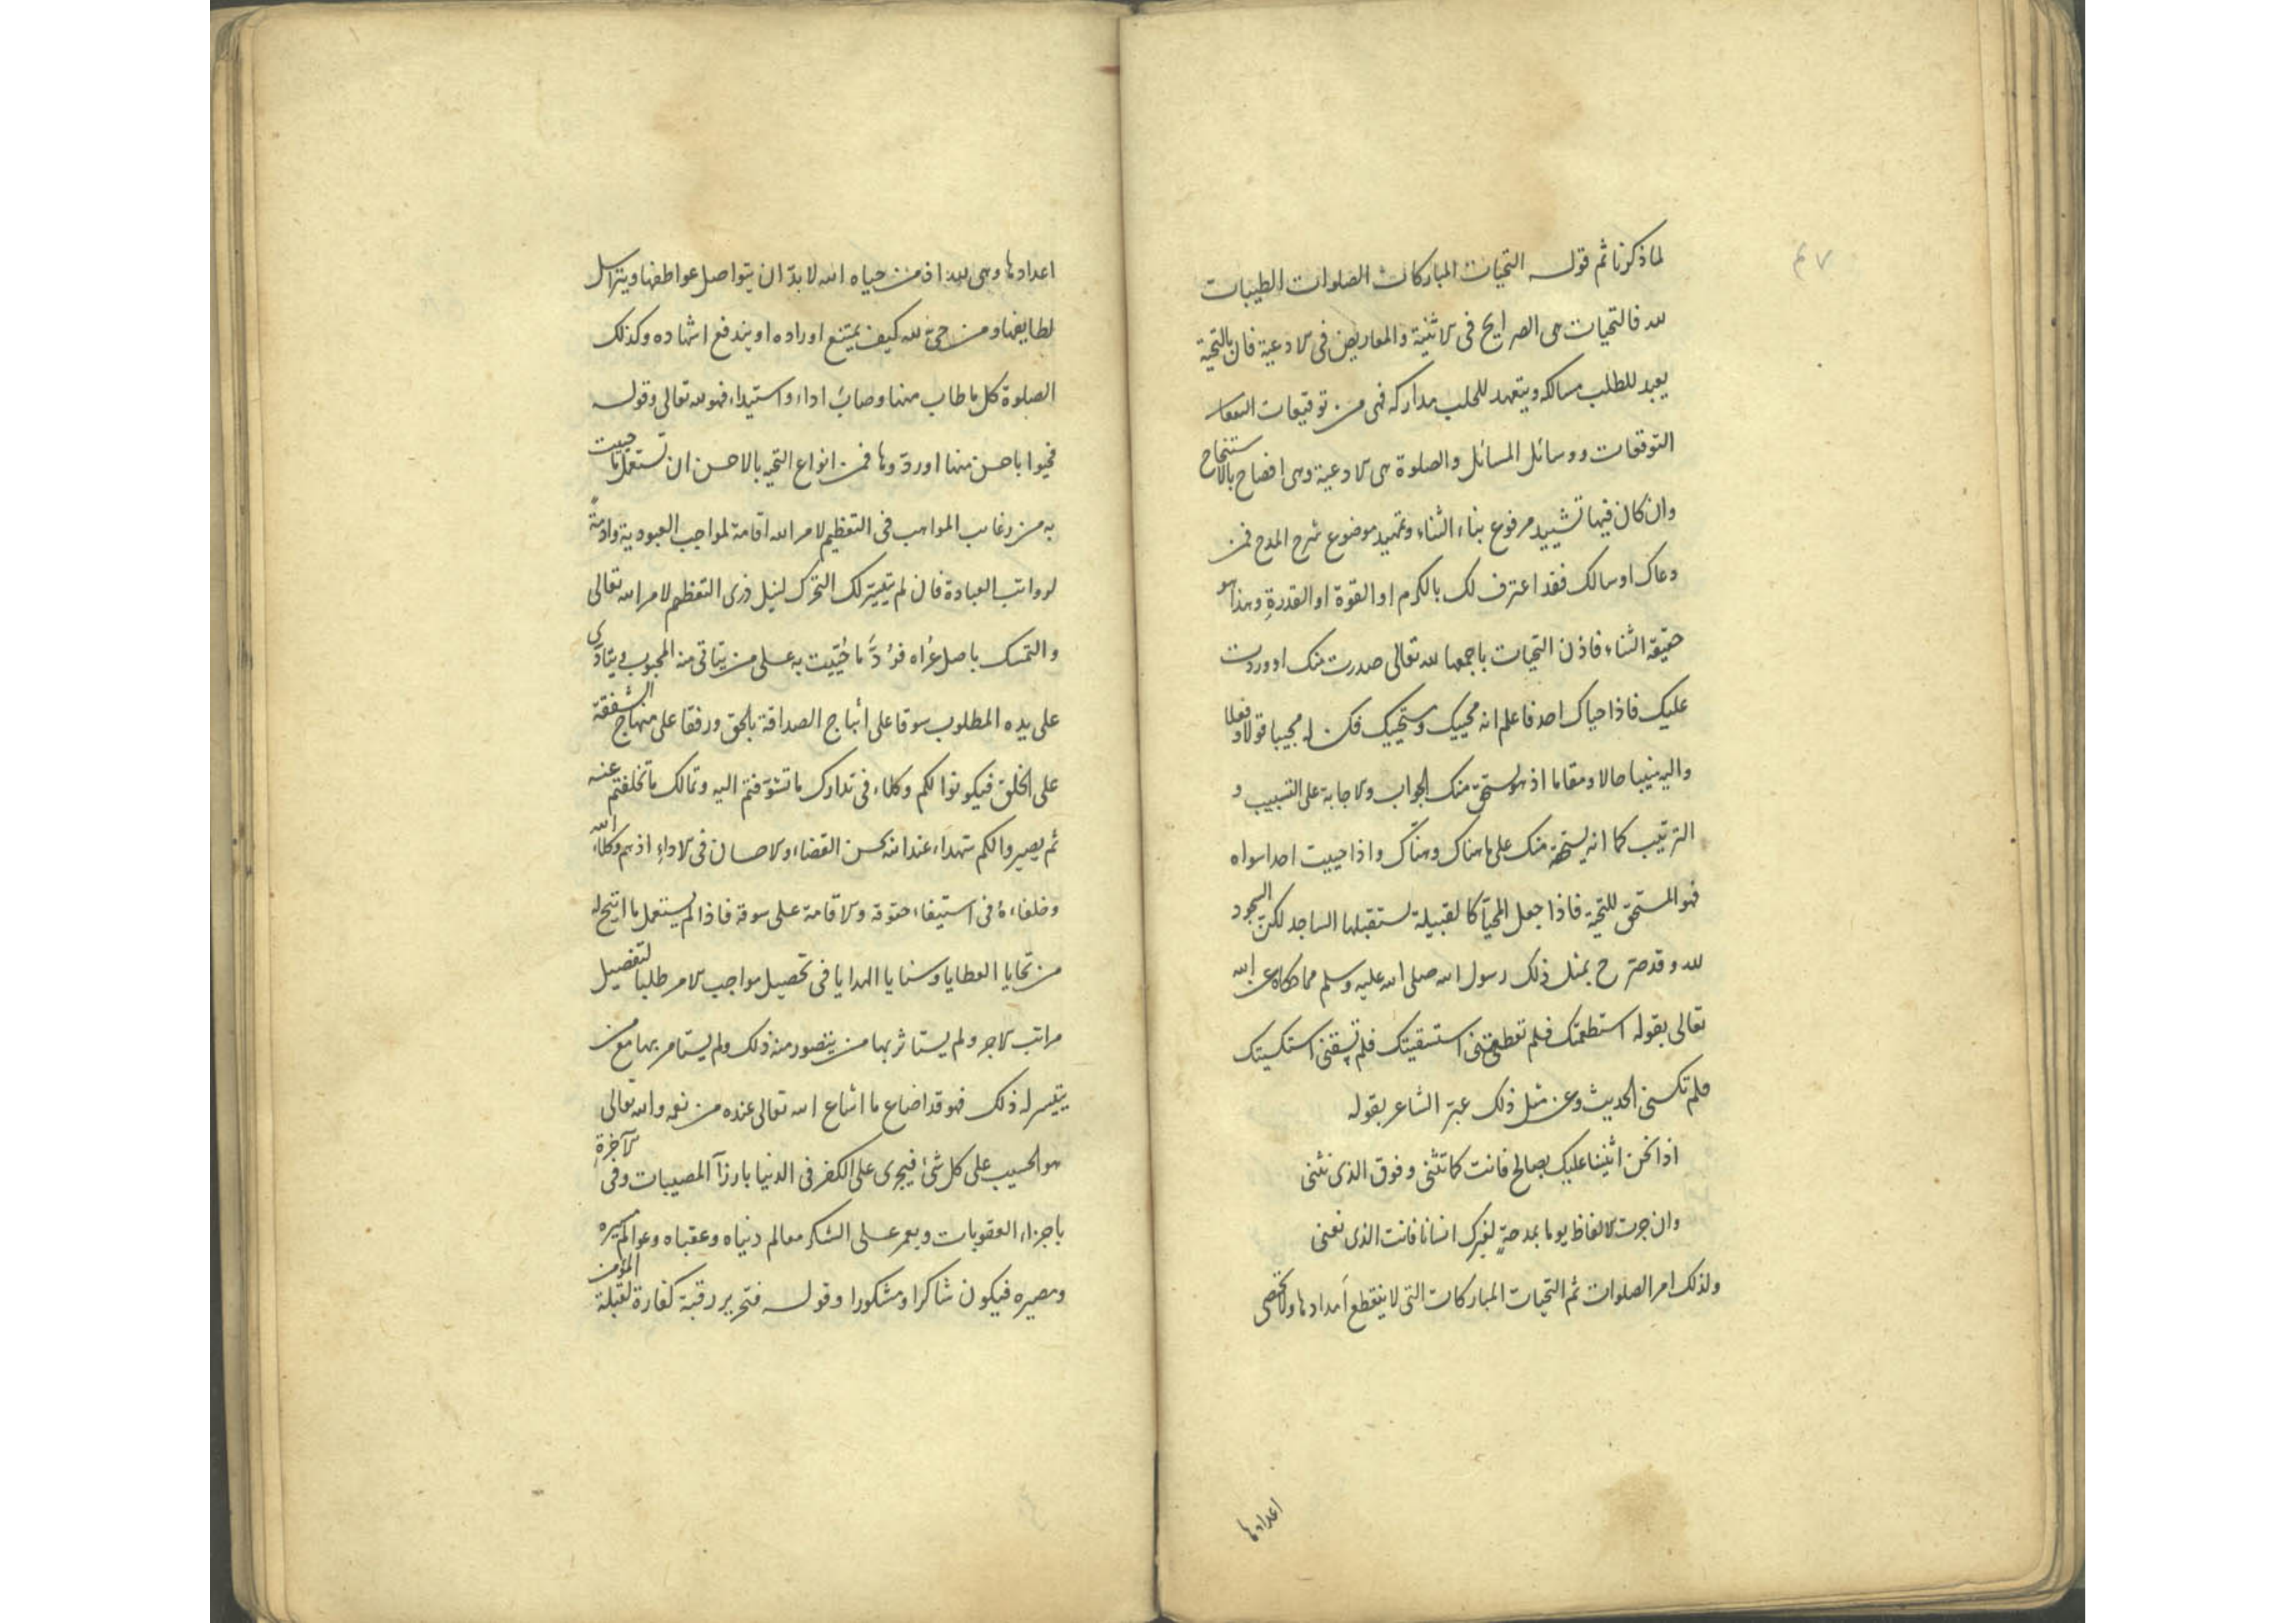 ٤٧
لما ذكرنا ثم قوله التحيات المباركات الصلوات الطيبات
لله فالتحيات هى الصرايح فى الاثنية والمعاريض فى الادعية فان بالتحية
يعبد للطلب مسالكه ويتعهد للحلب مداركه فهى من توقيعات
التوقعات ووسائل المسائل والصلوة هى الادعية وهى افصاح بالاستنجاح
وان كان فيها تشييد مرفوع بناء الثناء وتمهيد موضوع شرح المدح فمن
دعاك او سالك فقد اعترف لك بالكرم او القوة او القدرة وهذا هو
حقيقة الثناء فاذن التحيات باجمعها لله تعالى صدرت منك او وردت
عليك فاذا حياك احد فاعلم انه محييك ومستحييك فكن له مجيبا قولا وفعلا
واليه منيبا حالا ومقاما اذ هو المستحق منك الجواب والاجابة على التسبيب و
الترتيب كما انه يستحقه منك على ما هناك وهناك واذا حييت احدا سواه
فهو المستحق للتحية فاذا جعل المحيا كالقبيلة لستقبلها الساجد لكن السجود
لله وقد صرح بمثل ذلك رسول الله صلى الله عليه وسلم مما حكاه عن الله
تعالى بقوله استطعمتك فلم تطعمنى استسقيتك فلم تسقنى استكسيتك
فلم تكسنى الحديث وعن مثل ذلك عبر الشاعر بقوله
اذا نحن اثنينا عليك بصالح فانت كما تثنى وفوق الذى نثنى
وان جرت الالفاظ يوما بمدحةٍ لغيرك انسانا فانت الذى نعنى
ولذلك امر الصلوات ثم التحيات المباركات التى لا ينقطع أمدادها ولا تحصى
اعدادها
اعدادها وهى لله اذ من حياه الله لا بدّ ان يتواصل عواطفها ويتراسل
لطايفها ومن حىّ لله كيف يمتنع اوراده او يندفع اشهاده وكذلك
الصلوة كل ما طاب منها وصاب اداء واستيداء فهو لله تعالى وقوله
فحيوا باحسن منها او ردّوها فمن انواع التحية بالاحسن ان تستعمل ما حييت
به من رغايب المواهب فى التعظيم لامر الله اقامة لمواجب العبودية وادامةً
لرواتب العبادة فان لم يتيسّر لك التحرّك لنيل ذرى التعظيم لامر الله تعالى
والتمسك باصل عراه فرُدَّ ما حُيّيت به على من يتاتى منه المحبوب ويتادّى
على يده المطلوب سوقا على اثباج الصداقة بالحق ورفقا على منهاج الشفقة
على الخلق فيكونوا لكم وكلاء فى تدارك ما تشوّفتم اليه وتمالك ما تخلفتم عنه
ثم يصيروا لكم شهداء عند الله بحسن القضاء والاحسان فى الاداء اذ هم وكلاء الله
وخلفاءه فى استيفاء حقوقه والاقامة على سوقه فاذا لم يستعمل ما اتيح له
من تحايا العطايا وسنايا الهدايا فى تحصيل مواجب الامر طلبا لتفضيل
مراتب الاجر ولم يستاثر بها من يتصور منه ذلك ولم يستامر بها من
يتيسر له ذلك فهو قد اضاع ما اشاع الله تعالى عنده من نعمه والله تعالى
هو الحسيب على كل شئ فيجرى على الكفر فى الدنيا بارزآ المصيبات وفى الآخرةِ
باجزاء العقوبات ويعمر على الشكر معالم دنياه وعقباه وعوالم
ومصيره فيكون شاكرا ومشكورا وقوله فتحرير رقبة كفارة لقبلة المؤمن